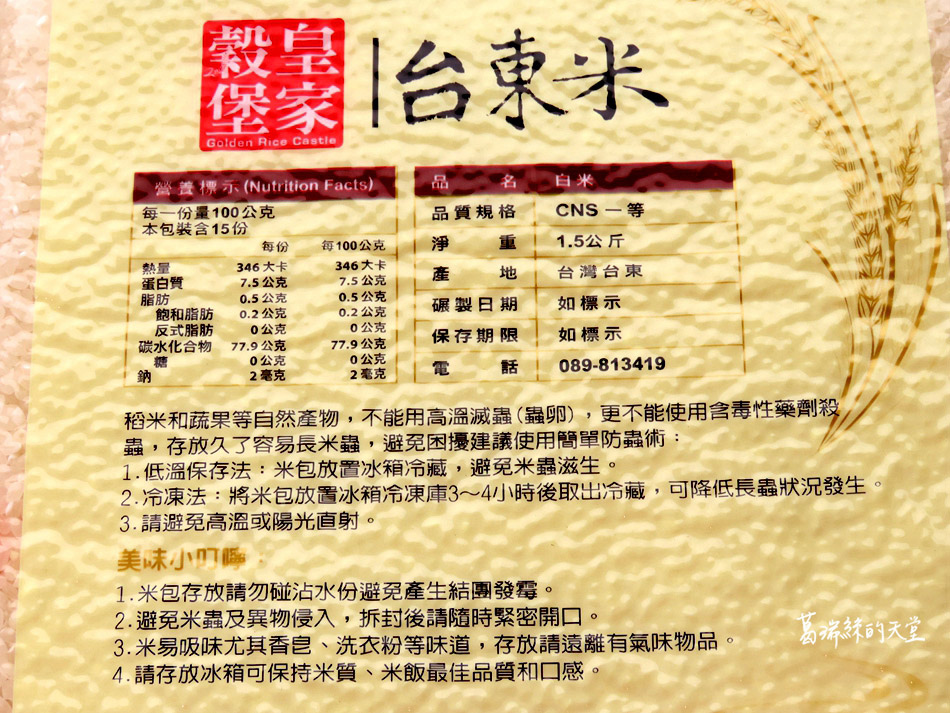 皇家穀堡
Golden Rice Castle
台東米
營養標示(Nutrition Facts)
每一份量100公克
本包裝含15份
每份 每100公克
熱量 346大卡 346大卡
蛋白質 7.5公克 7.5公克
脂肪 0.5公克 0.5公克
飽和脂肪 0.2公克 0.2公克
反式脂肪 0公克 0公克
碳水化合物 77.9公克 77.9公克
糖 0公克 0公克
鈉 2毫克 2毫克
品名 白米
品質規格 CNS 一等
淨重 1.5公斤
產地 台灣台東
碾製日期 如標示
保存期限 如標示
電話 089-813419
稻米和蔬果等自然產物，不能用高溫滅蟲(蟲卵)，更不能使用含毒性藥劑殺
蟲，存放久了容易長米蟲，避免困擾建議使用簡單防蟲術：
1.低溫保存法：米包放置冰箱冷藏，避免米蟲滋生。
2.冷凍法：將米包放置冰箱冷凍庫3～4小時後取出冷藏，可降低長蟲狀況發生。
3.請避免高溫或陽光直射。
美味小叮嚀：
1.米包存放請勿碰沾水份避免產生結團發霉。
2.避免米蟲及異物侵入，拆封後請隨時緊密開口。
3.米易吸味尤其香皂、洗衣粉等味道，存放請遠離有氣味物品。
4.請存放冰箱可保持米質、米飯最佳品質和口感。
葛瑞絲的天堂